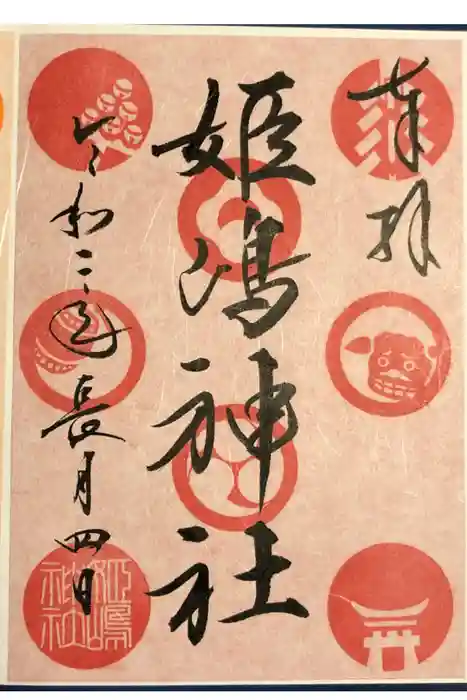 奉拝
姫嶋神社
令和二年長月四日
姫嶋神社